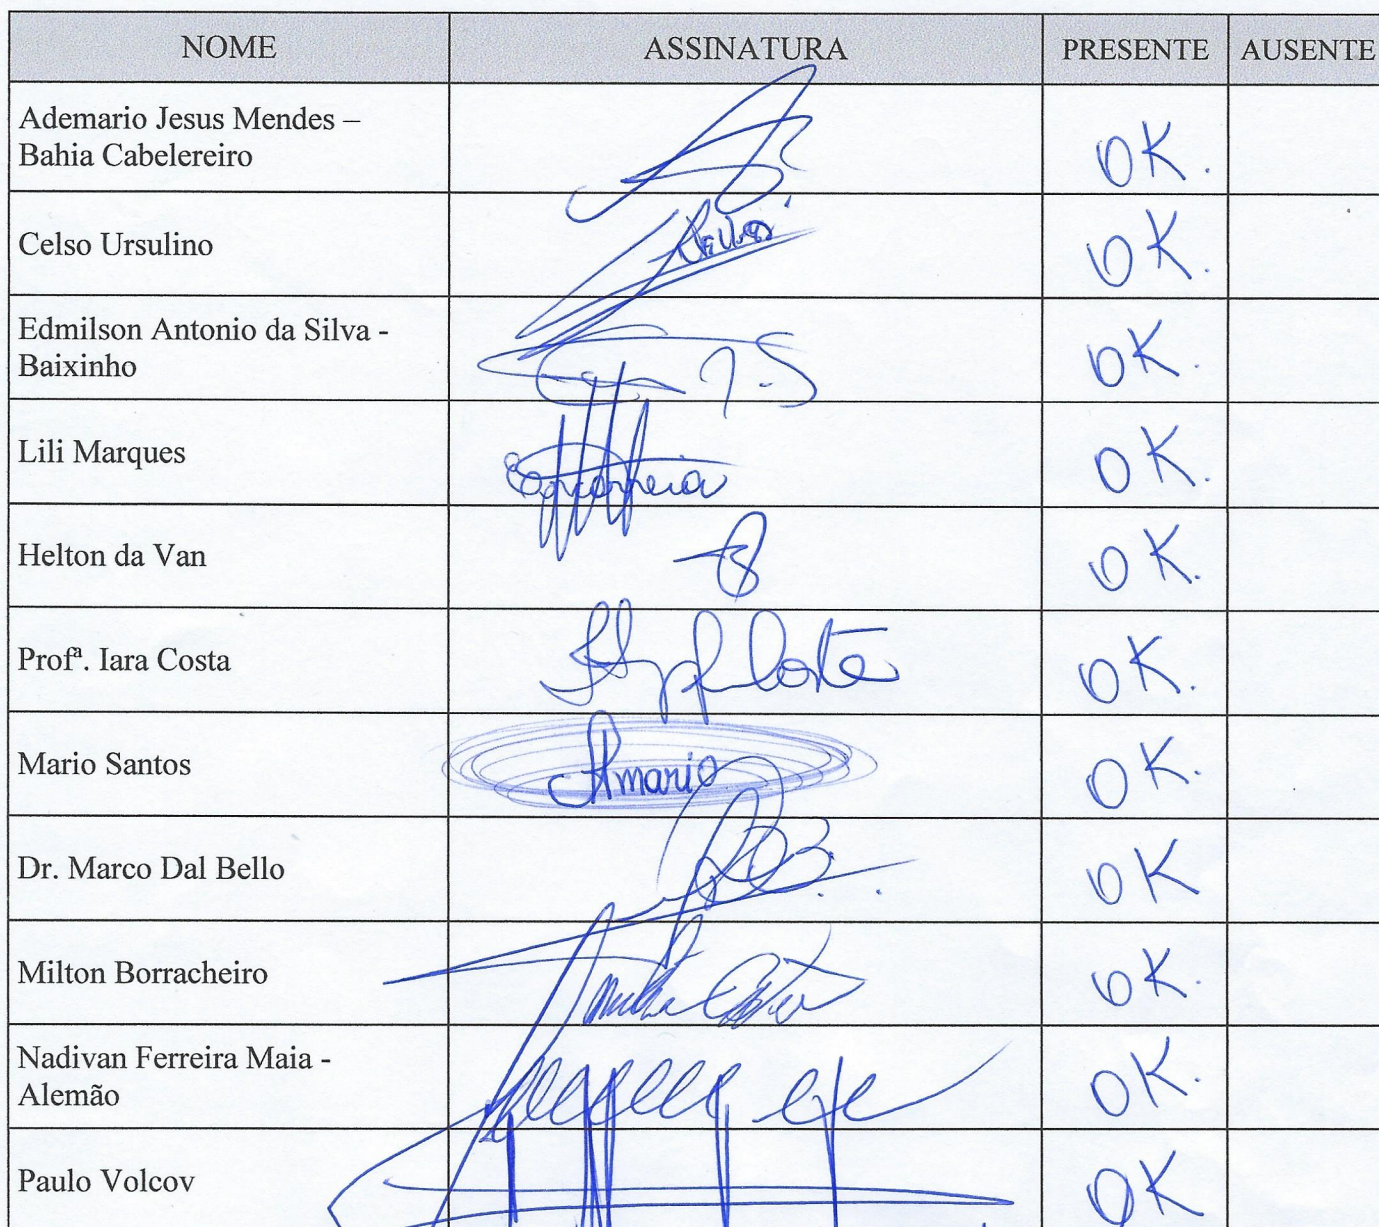 NOME ASSINATURA PRESENTE AUSENTE
Ademario Jesus Mendes –
Bahia Cabelereiro OK.
Celso Ursulino OK.
Edmilson Antonio da Silva -
Baixinho OK.
Lili Marques OK.
Helton da Van OK.
Profª. Iara Costa Costa OK.
Mario Santos mario OK.
Dr. Marco Dal Bello OK
Milton Borracheiro OK.
Nadivan Ferreira Maia -
Alemão OK.
Paulo Volcov OK